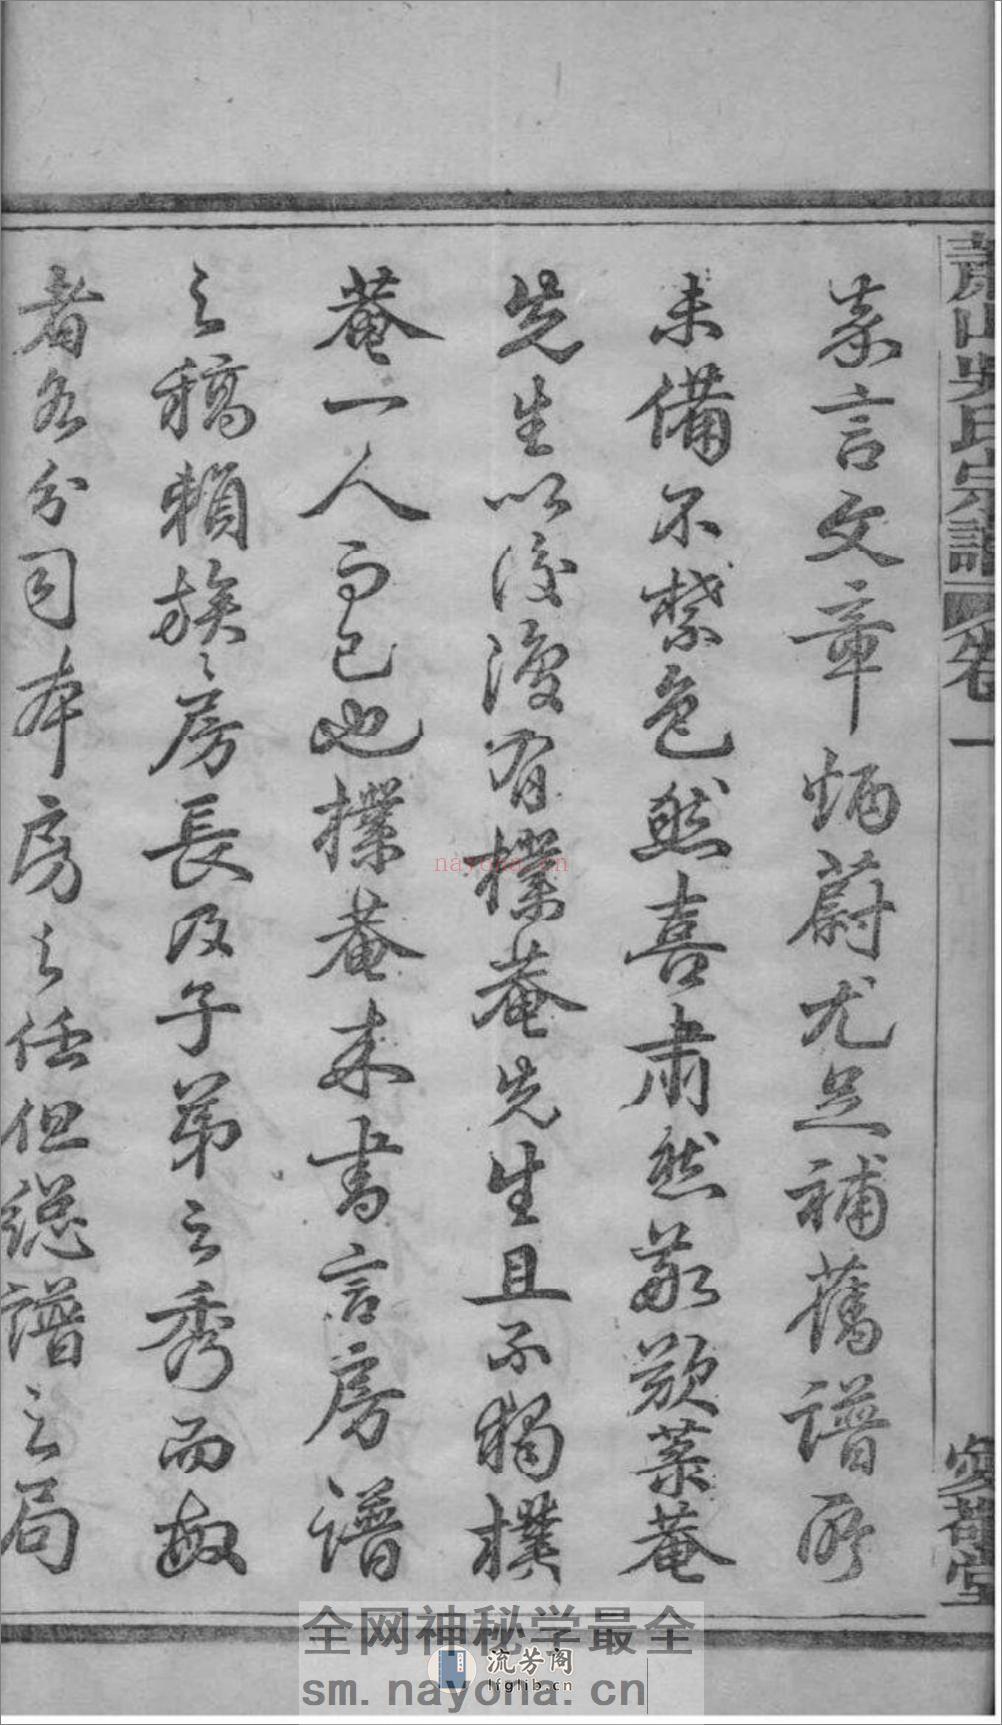 蕭山吳氏宗譜 卷一
愛敬堂
言文章炳蔚尤足補舊譜所
未備不禁色然喜肅然敬歎菉菴
先生以後復有樸菴先生且不獨樸
菴一人而已也樸菴來書言房譜
之稿賴族之房長及子弟之秀而敏
者各分司本房之任但總譜之局
nayona.cn
全网神秘学最全
流芳阁
lfglib.cn
sm.nayona.cn